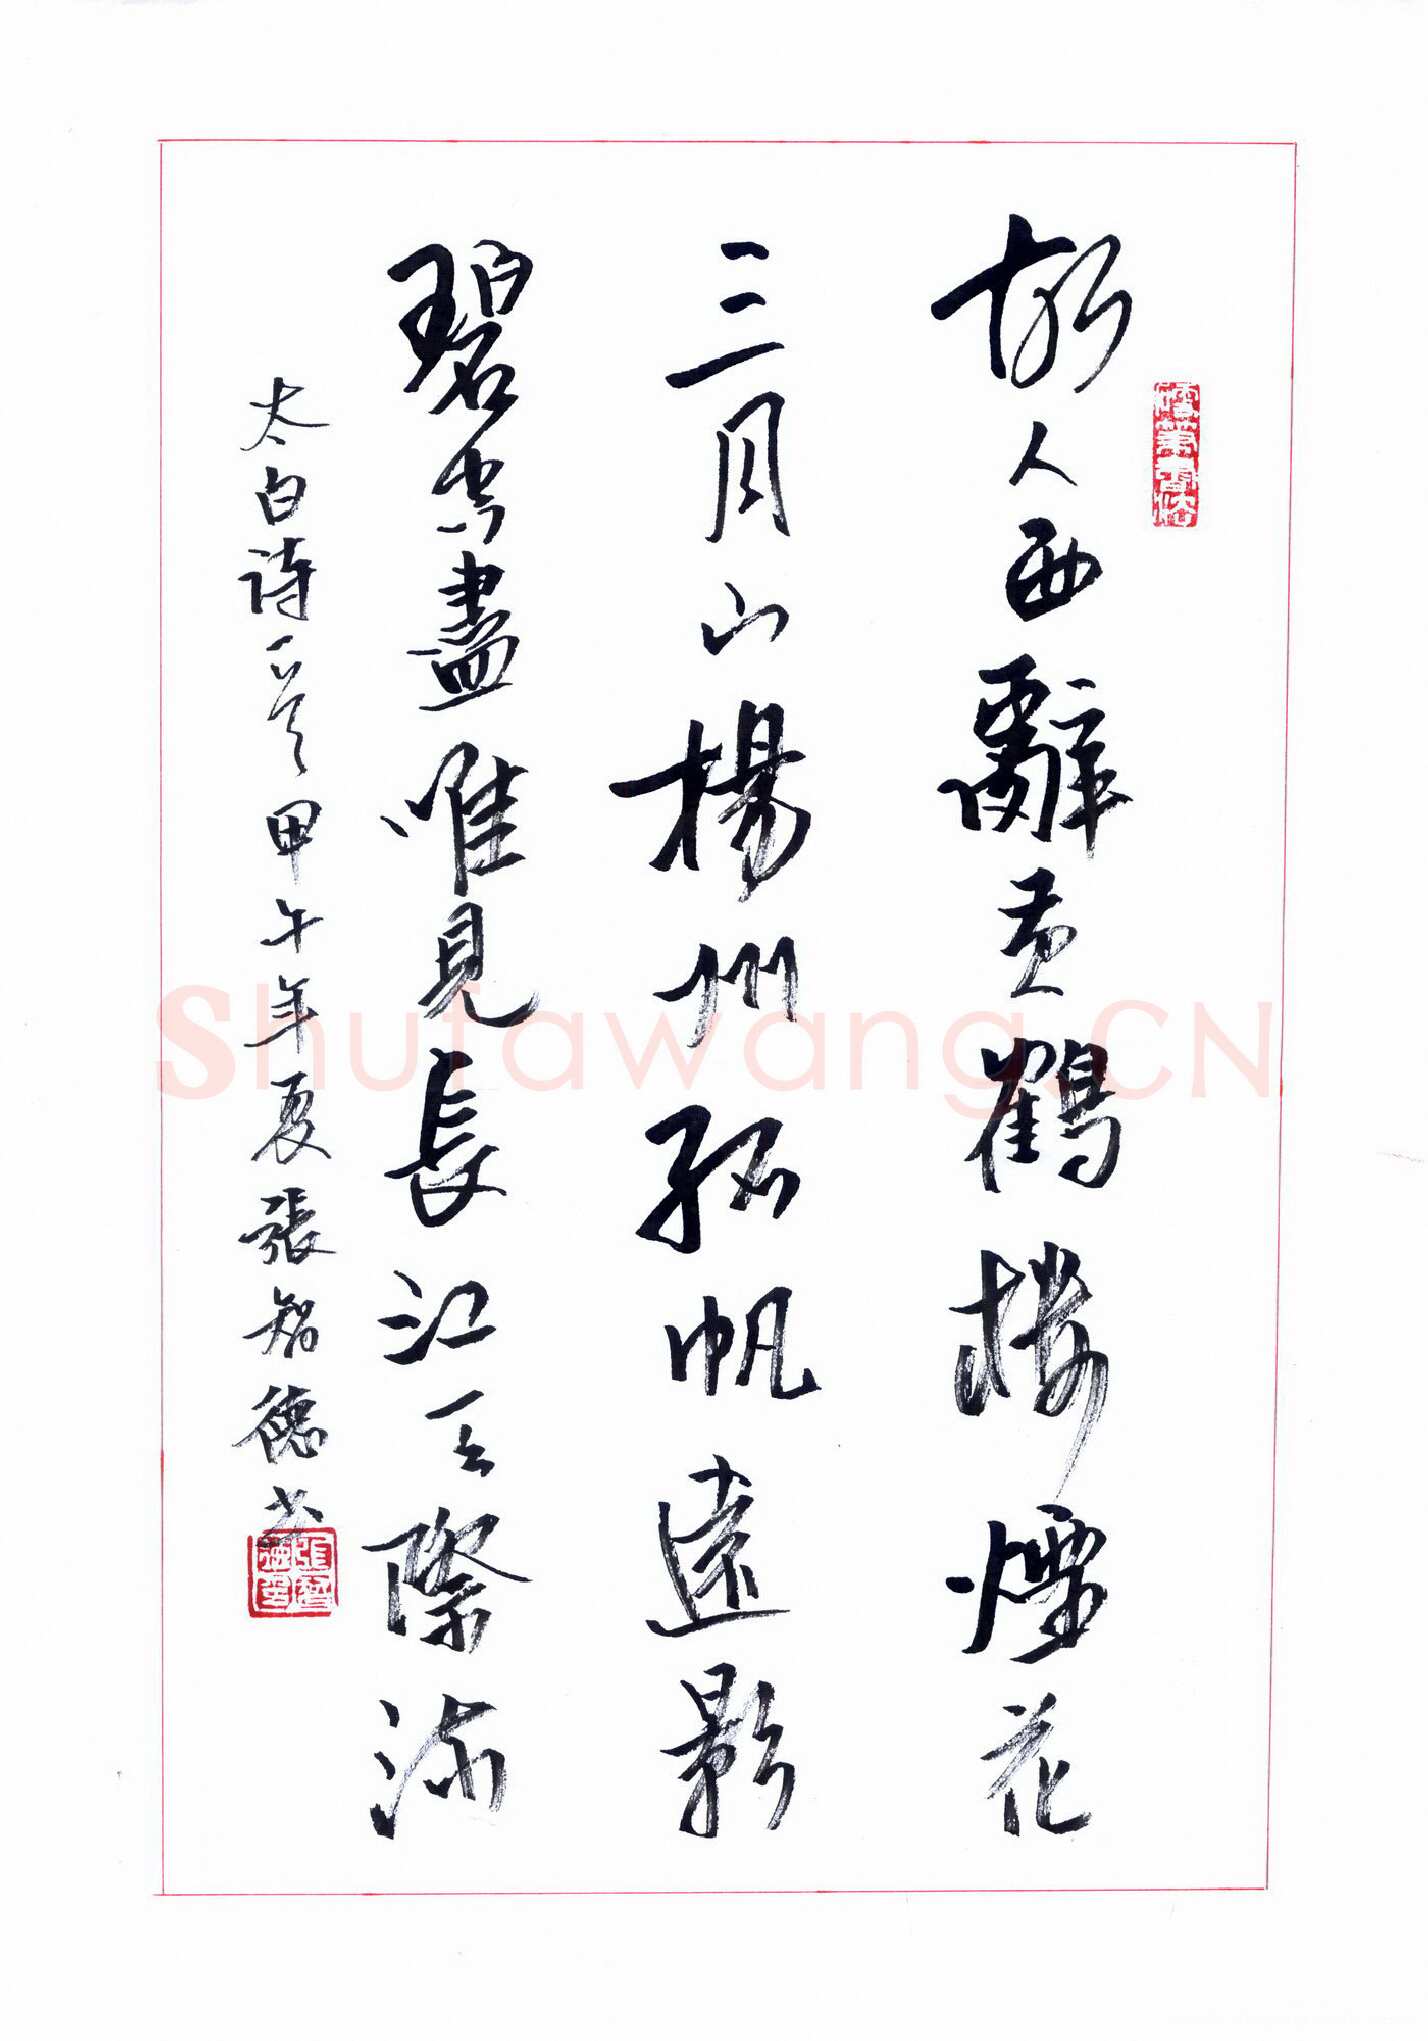 故人西辭黃鶴樓煙花
三月下揚州孤帆遠影
碧空盡唯見長江天際流
太白詩一首甲午年夏張智德書
Shufawang.CN